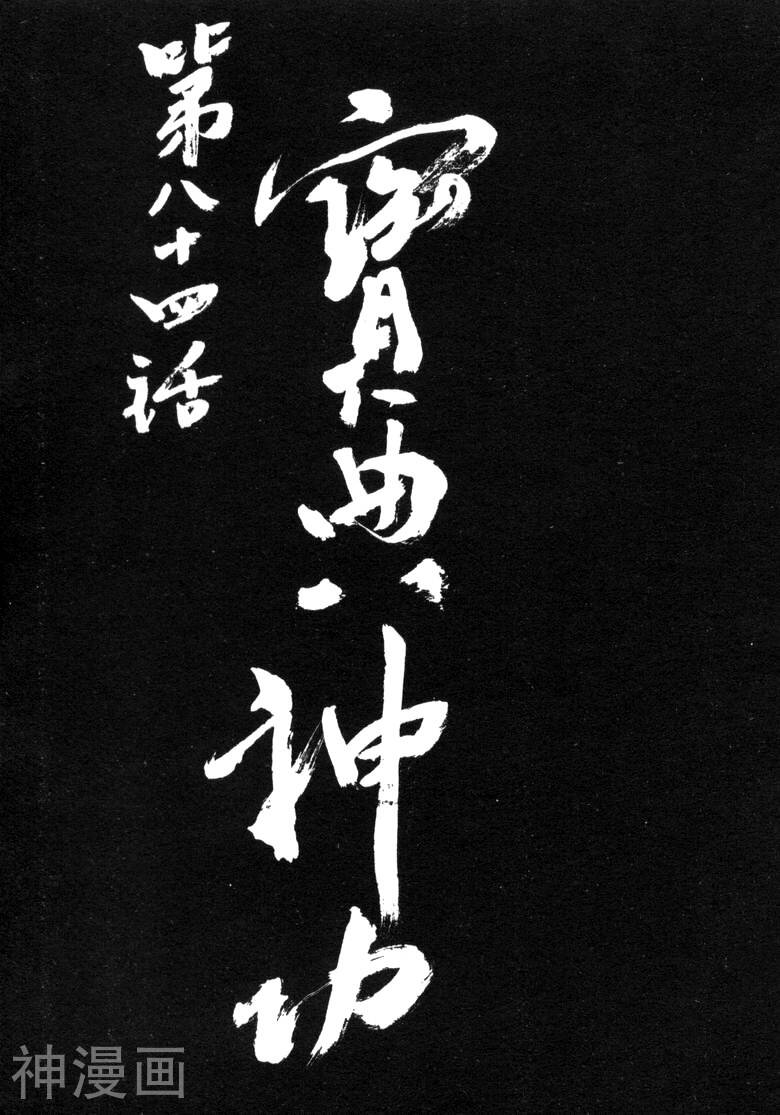 第八十四話
寶典神功
神漫画